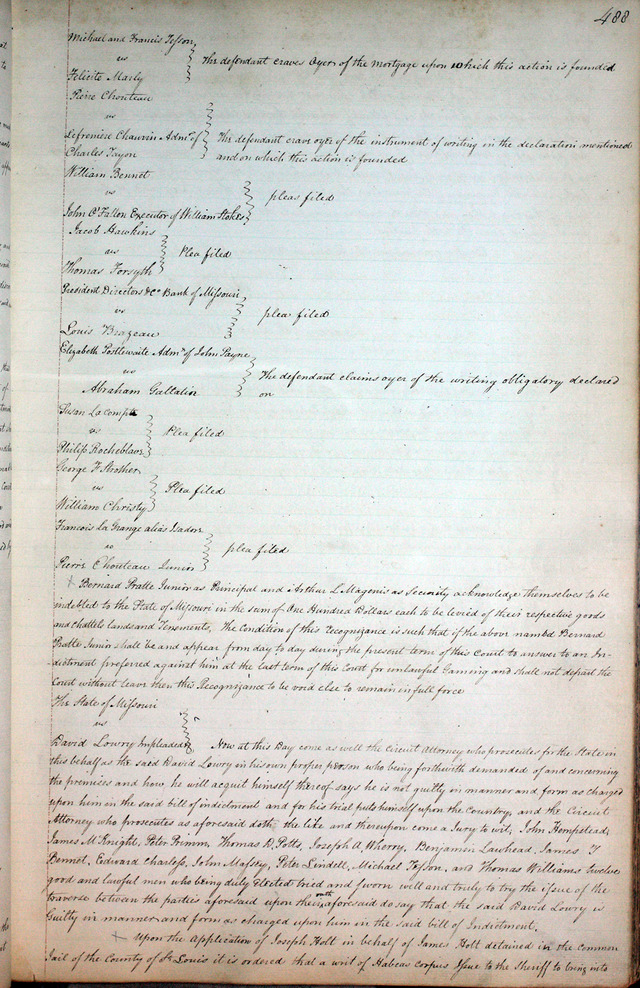 488
Michael and Francis Tesson
vs
The defendant craves Oyer of the mortgage upon which this action is founded
Felicite Marly
Pierre Chouteau
vs
Lefreniere Chauvin Admr. of
The defendant crave oyer of the instrument of writing in the declaration mentioned
Charles Tayon
and on which this action is founded
William Bennet
vs
pleas filed
John O'Fallon Executor of William Stokes
Jacob Hawkins
vs
Plea filed
Thomas Forsyth
President Directors &Co. Bank of Missouri
vs
plea filed
Louis Brazeau
Elizabeth Postlewaite Admr. of John Payne
vs
The defendant claims oyer of the writing obligatory declared
Abraham Gallatin
on
Susan La Compte
vs
Plea filed
Philip Rocheblave
George F Strother
vs
Plea filed
William Christy
Francois La Grange alias Isadore
vs
plea filed
Pierre Chouteau Junior
Bernard Pratte Junior as Principal and Arthur L Magenis as Security acknowledge themselves to be
indebted to the State of Missouri in the sum of One Hundred Dollars each to be levied of their respective goods
and chattels lands and Tenements, The Condition of this Recognizance is such that if the above named Bernard
Pratte Junior shall be and appear from day to day during the present term of this Court to answer to an In-
dictment preferred against him at the last term of this Court for unlawful Gaming and shall not depart the
Court without leave then this Recognizance to be void else to remain in full force
The State of Missouri
vs
David Lowry Impleaded &c
Now at this Day come as well the Circuit Attorney who prosecutes for the State in
this behalf as the said David Lowry in his own proper person who being forthwith demanded of and concerning
the premises and how he will acquit himself thereof says he is not guilty in manner and form as charged
upon him in the said bill of indictment and for his trial puts himself upon the Country, and the Circuit
Attorney who prosecutes as aforesaid doth the like and thereupon come a Jury to wit, John Hempstead,
James McKnight, Peter Primm, Thomas D. Potts, Joseph A. Wherry, Benjamin Lawhead, James Y
Bennet, Edward Charless, John Massey, Peter Lindell, Michael Tesson, and Thomas Williams twelve
good and lawful men who being duly Elected tried and sworn well and truly to try the issue of the
traverse between the parties aforesaid upon their oath aforesaid do say that the said David Lowry is
Guilty in manner and form as charged upon him in the said bill of Indictment.
Upon the Application of Joseph Hott in behalf of James Hott detained in the Common
Jail of the County of St. Louis it is ordered that a writ of Habeas Corpus Issue to the Sheriff to bring into